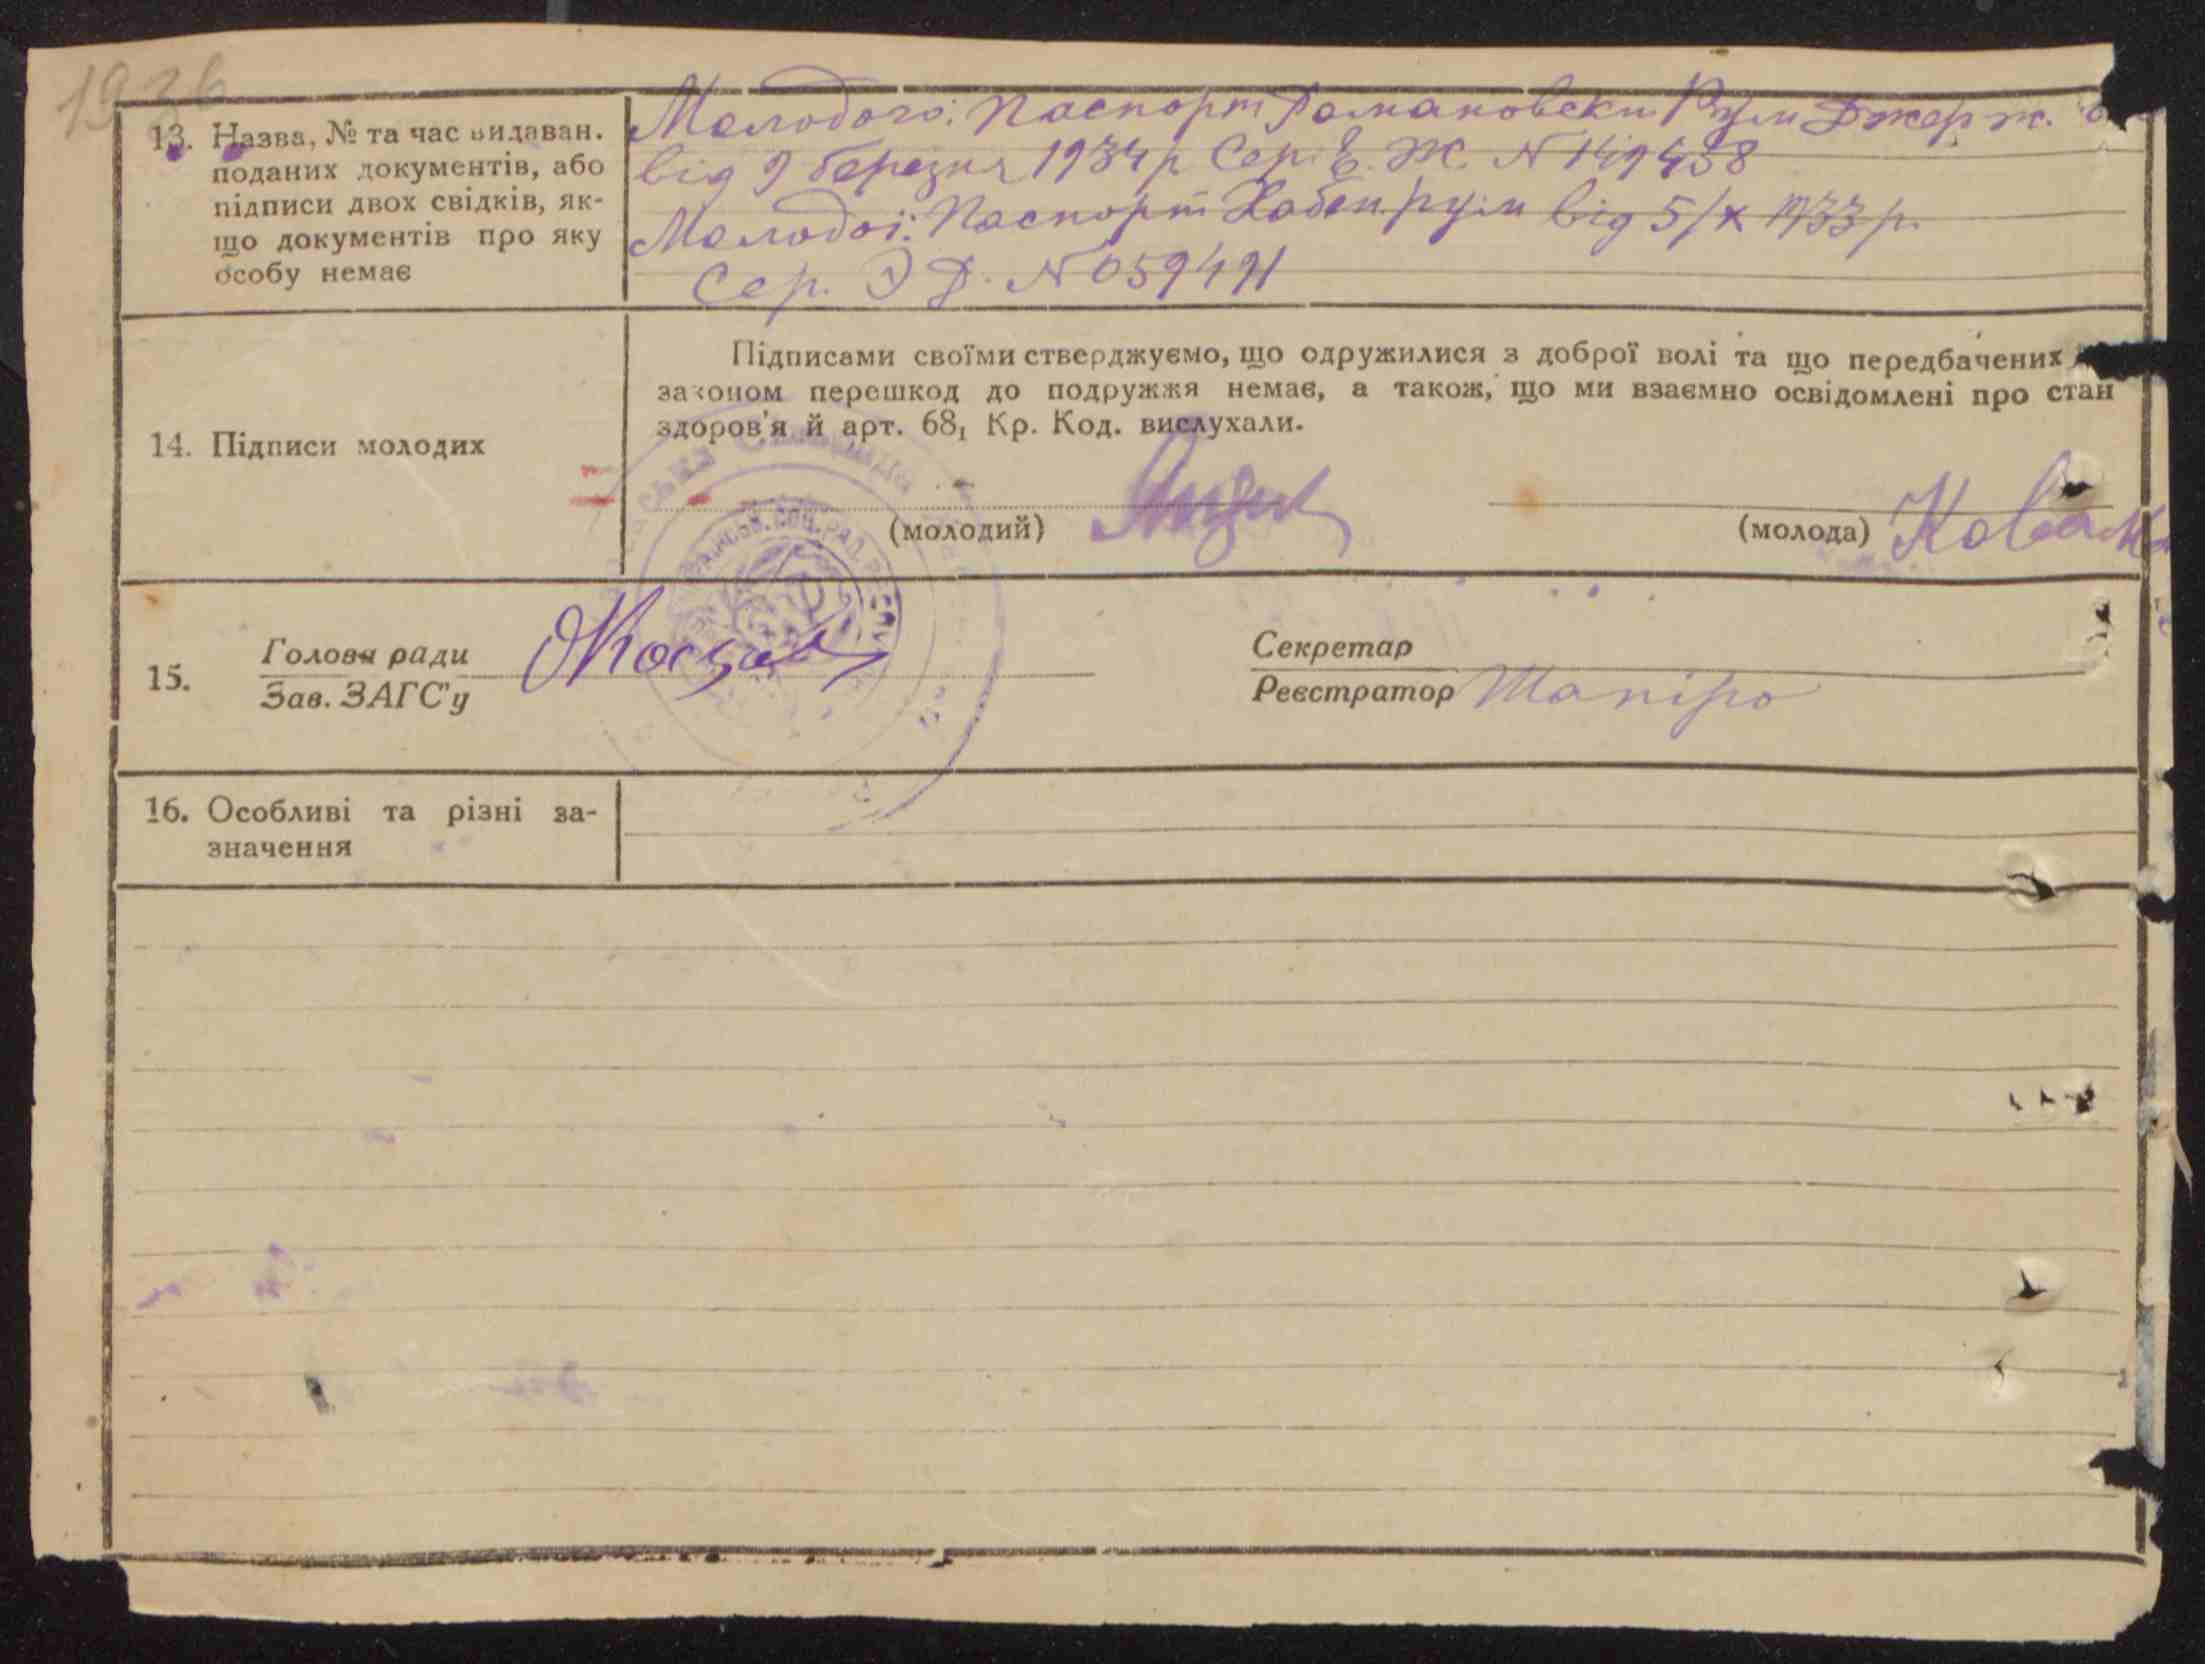 1936
13. Назва, № та час видаван.
поданих документів, або
підписи двох свідків, як-
що документів про яку
особу немає
Молодого: Паспорт Романовски Рум Держ.
від 9 березня 1934 р Сер. Є. Ж. N 149438
Молодої: Паспорт Хабен. рум від 5/X 1933 р.
Сер. Э Д. N 059491
14. Підписи молодих
Підписами своїми стверджуємо, що одружилися з доброї волі та що передбачених
законом перешкод до подружжя немає, а також, що ми взаємно освідомлені про стан
здоров'я й арт. 68₁ Кр. Код. вислухали.
(молодий)
(молода) Кова
15.
Голова ради
Зав. ЗАГС'у
Секретар
Реєстратор Шапіро
16. Особливі та різні за-
значення